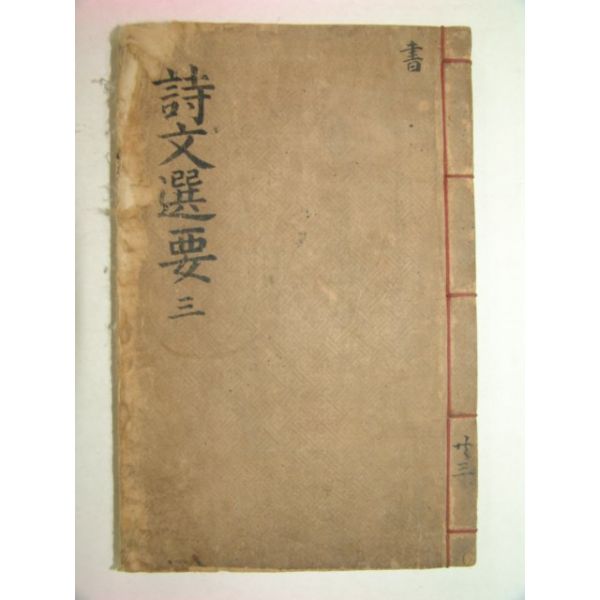 書
詩文選要 三
共三